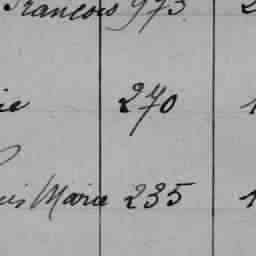 François 973 2
ie 270 1
is Marie 235 1